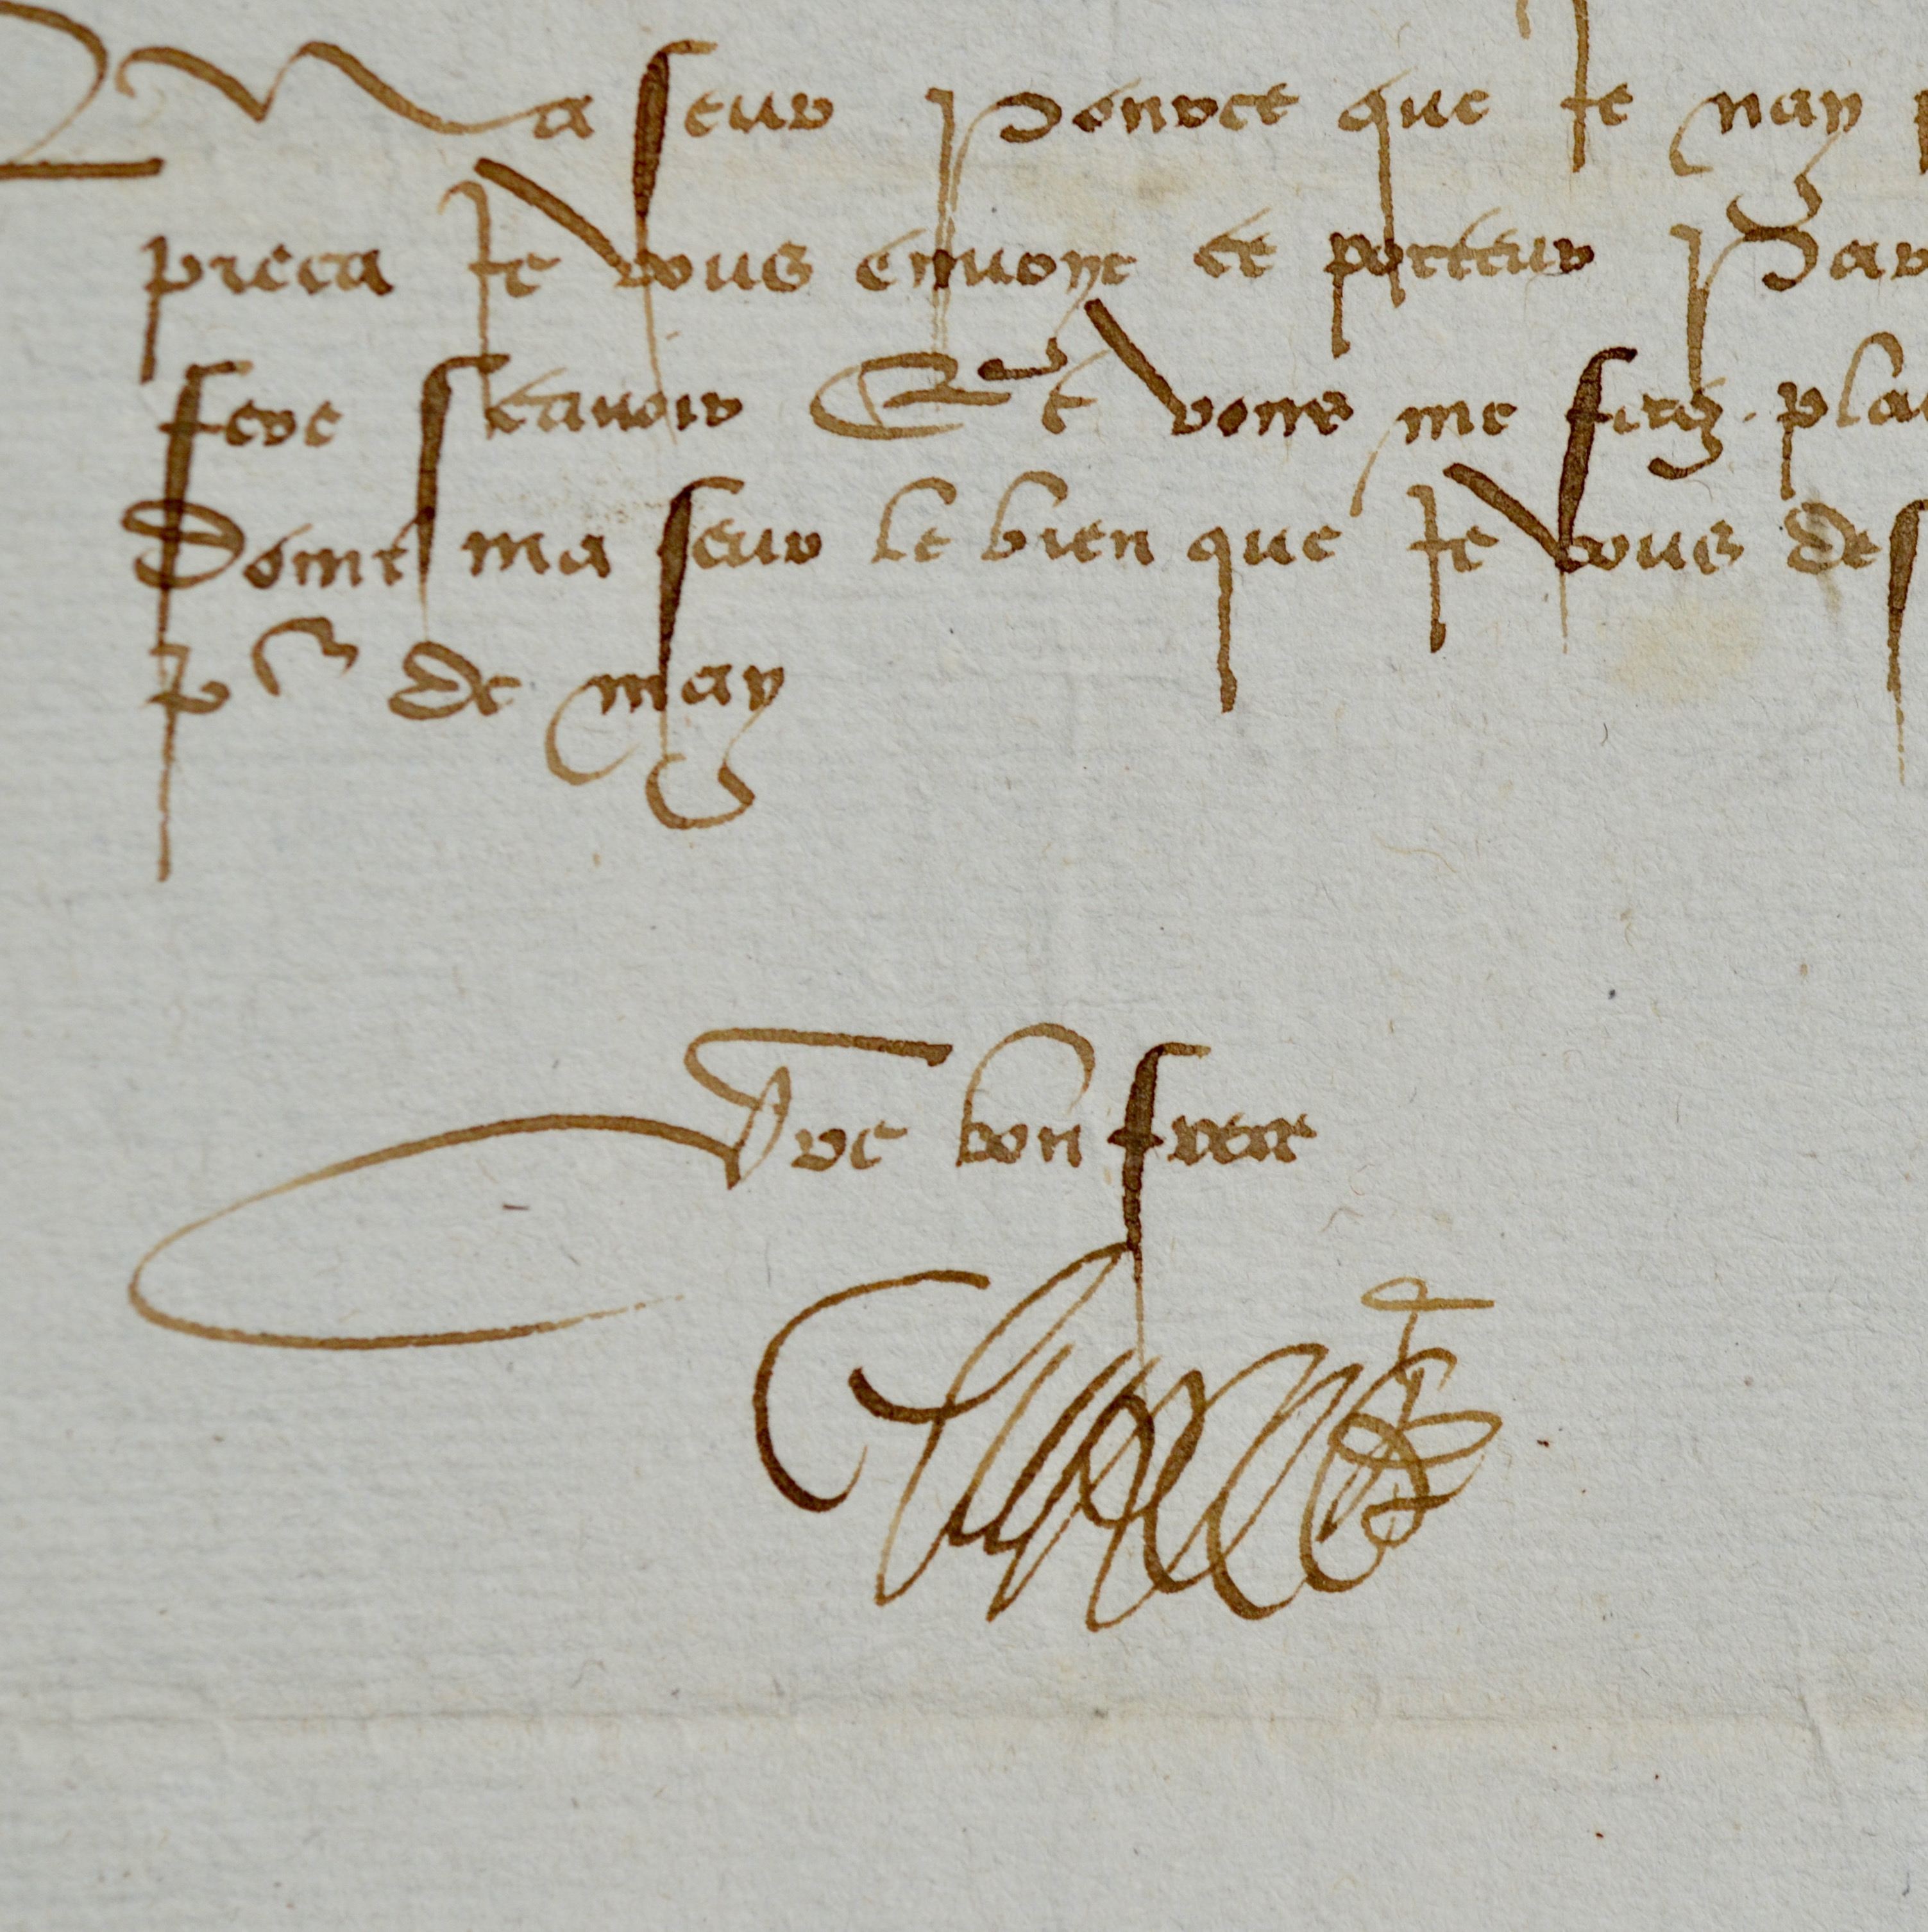 Ma seur Pource que Je nay
pieca Je vous envoye ce porteur Par
fere scavoir Et vous me ferez pla
Doint ma seur le bien que Je vous des
pr de may
Vre bon frere